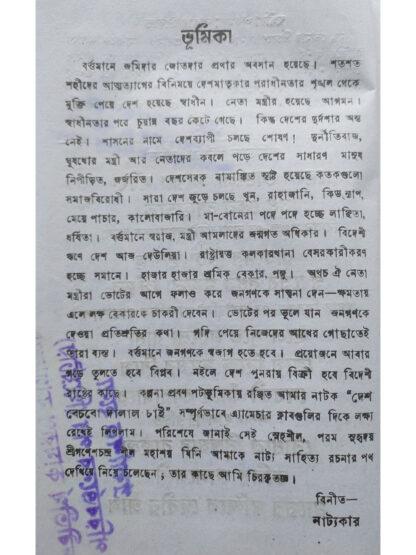 ভূমিকা
বর্তমানে জমিদার জোতদার প্রথার অবসান হয়েছে। শতশত
শহীদের আত্মত্যাগের বিনিময়ে দেশমাতৃকার পরাধীনতার শৃঙ্খল থেকে
মুক্তি পেয়ে দেশ হয়েছে স্বাধীন। নেতা মন্ত্রীর হয়েছে আগমন।
স্বাধীনতার পরে চুয়ান্ন বছর কেটে গেছে। কিন্তু দেশের দুর্দশার অন্ত
নেই। শাসনের নামে দেশব্যাপী চলছে শোষণ! দুর্নীতিবাজ,
ঘুষখোর মন্ত্রী আর নেতাদের কবলে পড়ে দেশের সাধারণ মানুষ
নিপীড়িত, জর্জরিত। দেশসেবক নামাঙ্কিত সৃষ্টি হয়েছে কতকগুলো
সমাজবিরোধী। সারা দেশ জুড়ে চলছে খুন, রাহাজানি, কিডন্যাপ,
মেয়ে পাচার, কালোবাজারি। মা-বোনেরা পদে পদে হচ্ছে লাঞ্ছিতা,
ধর্ষিতা। বর্তমানে স্বরাজ, মন্ত্রী আমলাদের জন্মগত অধিকার। বিদেশী
ঋণে দেশ আজ দেউলিয়া। রাষ্ট্রায়ত্ত কলকারখানা বেসরকারীকরণ
হচ্ছে সমানে। হাজার হাজার শ্রমিক বেকার, পঙ্গু। অথচ ঐ নেতা
মন্ত্রীরা ভোটের আগে ফলাও করে জনগণকে সান্ত্বনা দেন—ক্ষমতায়
এলে লক্ষ বেকারকে চাকরী দেবেন। ভোটের পর ভুলে যান জনগণকে
দেওয়া প্রতিশ্রুতির কথা। গদি পেয়ে নিজেদের আখের গোছাতেই
তারা ব্যস্ত। বর্তমানে জনগণকে সজাগ হতে হবে। প্রয়োজনে আবার
গড়ে তুলতে হবে বিপ্লব। নইলে দেশ পুনরায় বিক্রী হবে বিদেশী
রাষ্ট্রের কাছে। কল্পনা প্রবণ পটভূমিকায় রঞ্জিত আমার নাটক "দেশ
বেচবো দালাল চাই" সম্পূর্ণভাবে এ্যামেচার ক্লাবগুলির দিকে লক্ষ্য
রেখেই লিখলাম। পরিশেষে জানাই সেই স্নেহশীল, পরম সুহৃদয়
শ্রীগণেশচন্দ্র শীল মহাশয় যিনি আমাকে নাট্য সাহিত্য রচনার পথ
দেখিয়ে নিয়ে চলেছেন; তার কাছে আমি চিরকৃতজ্ঞ।
বিনীত—
নাট্যকার